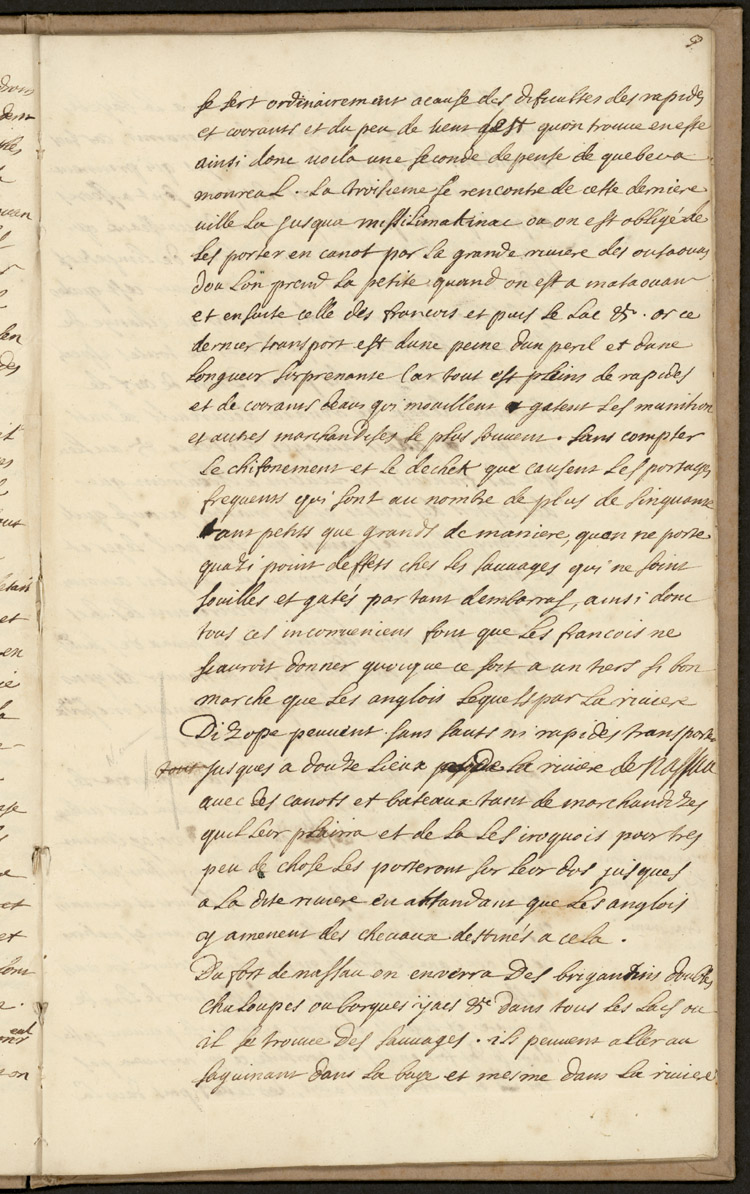 9.
se sert ordinairement a cause des dificultes des rapides
et courants et du peu de vent qest quon trouve en este
ainsi donc voila une seconde depense de quebec a
monreal. La troisieme se rencontre de cette derniere
ville La jusqua missilimakinac ou on est obligé de
Les porter en canot par la grande riviere des outaouas
dou Lon prend La petite quand on est a mataouan
et ensuite celle des francois et puis Le Lac &c. or ce
dernier transport est dune peine dun peril et dune
Longueur surprenante Car tout est pleins de rapides
et de courants deaux qui mouillent gatent Les munition
et autres marchandises Le plus souvent. sans compter
Le chifonement et Le dechek que causent Les portages
frequents qui sont au nombre de plus de sinquante
tant petits que grands de maniere, quon ne porte
quazi point deffets ches Les sauvages qui ne soint
souilles et gatés par tant dembarras, ainsi donc
tous ces inconveniens font que Les francois ne
scauroit donner quoique ce soit a un tiers si bon
marche que Les anglois Lequels par La riviere
Dizope peuvent sans sauts ni rapides transporter
jusques a douze Lieux La riviere de Nassau
avec des canots et bateaux tant de marchandizes
quil Leur plairra et de La Les iroquois pour tres
peu de chose Les porteront sur Leur dos jusques
a La dite riviere en attandant que Les anglois
y amenent des chevaux destinés a cela.
Du fort de nassau on enverra Des brigantins doubles
chaloupes ou barques &c dans tous Les Lacs ou
il se trouve Des sauvages. ils peuvent aller au
saguinant dans La baye et mesme dans La riviere